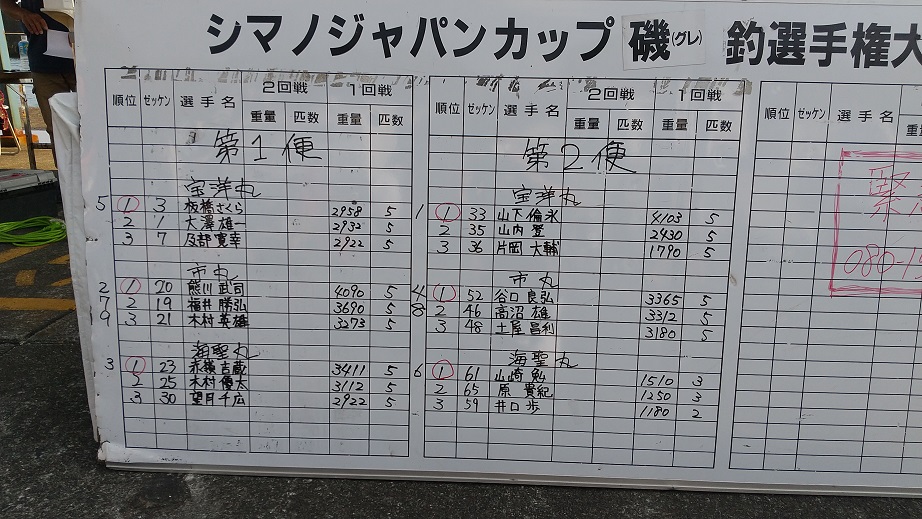 シマノジャパンカップ 磯(グレ) 釣選手権大
順位 ゼッケン 選手名 2回戦 重量 匹数 1回戦 重量 匹数
第1便
宝洋丸
5 1 3 板橋さくら 2958 5
2 1 大澤雄一 2932 5
3 7 及部寛幸 2922 5
市丸
2 1 20 熊川武司 4090 5
7 2 19 福井勝弘 3690 5
9 3 21 木村英雄 3273 5
海聖丸
3 1 23 赤嶺吉蔵 3411 5
2 25 木村優太 3112 5
3 30 望月千広 2922 5
順位 ゼッケン 選手名 2回戦 重量 匹数 1回戦 重量 匹数
第2便
宝洋丸
1 1 33 山下倫永 4103 5
2 35 山内 2430 5
3 36 片岡大輔 1790 5
市丸
4 1 52 谷口良弘 3365 5
8 2 46 高沼雄 3312 5
3 48 土屋昌利 3180 5
海聖丸
6 1 61 山崎勉 1510 3
2 65 原貴紀 1250 3
3 59 井口歩 1180 2
順位 ゼッケン 選手名
緊
080-1